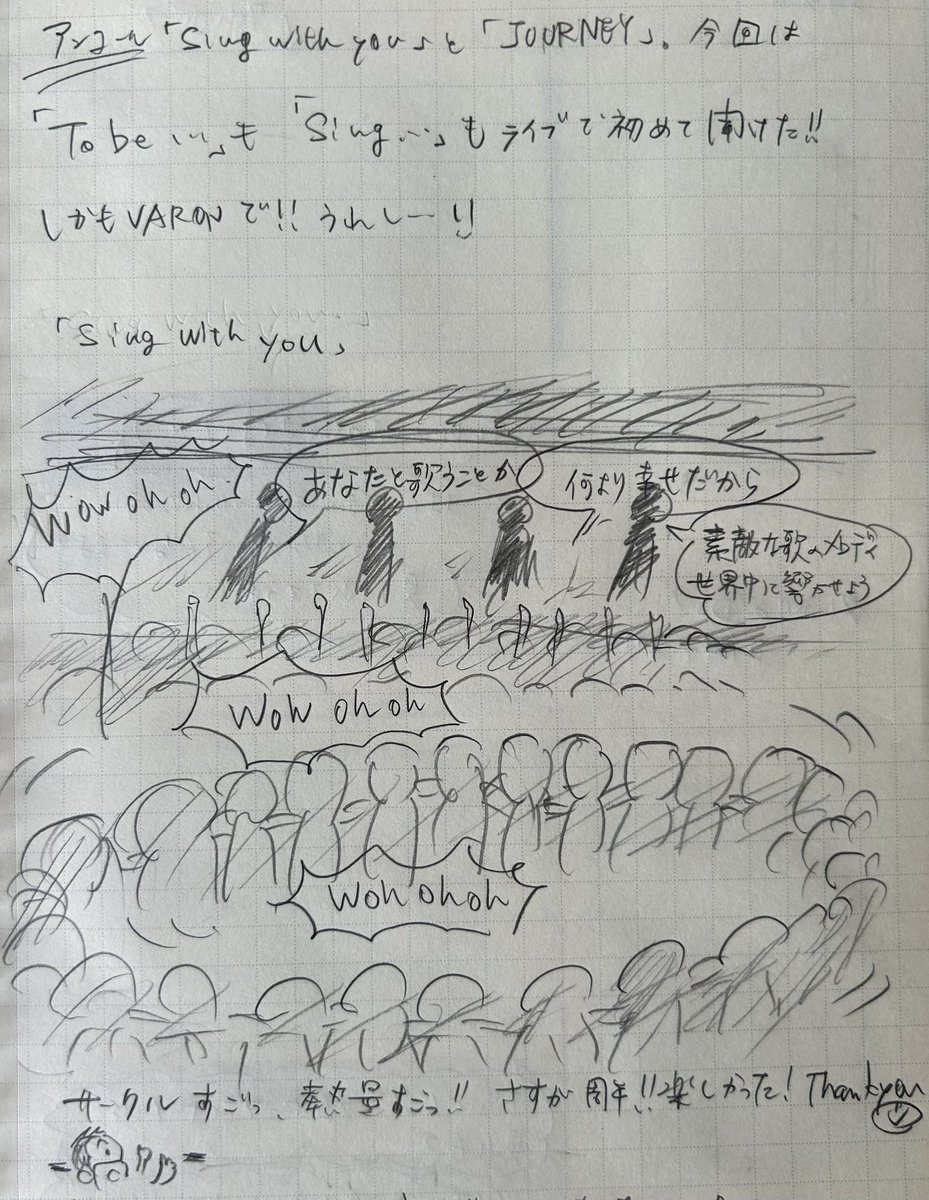 アンコール「Sing with you」と「JOURNEY」。今回は
「To be …」も「Sing …」もライブで初めて聞けた!!
しかもVARONで!! うれしーーい
「Sing with you」
Wow oh oh
あなたと歌うことが
何より幸せだから
素敵な歌のメロディ
世界中に響かせよう
Woh oh oh
Woh oh oh
サークルすごっ、熱量すごっ!! さすが周年!! 楽しかった! Thank you